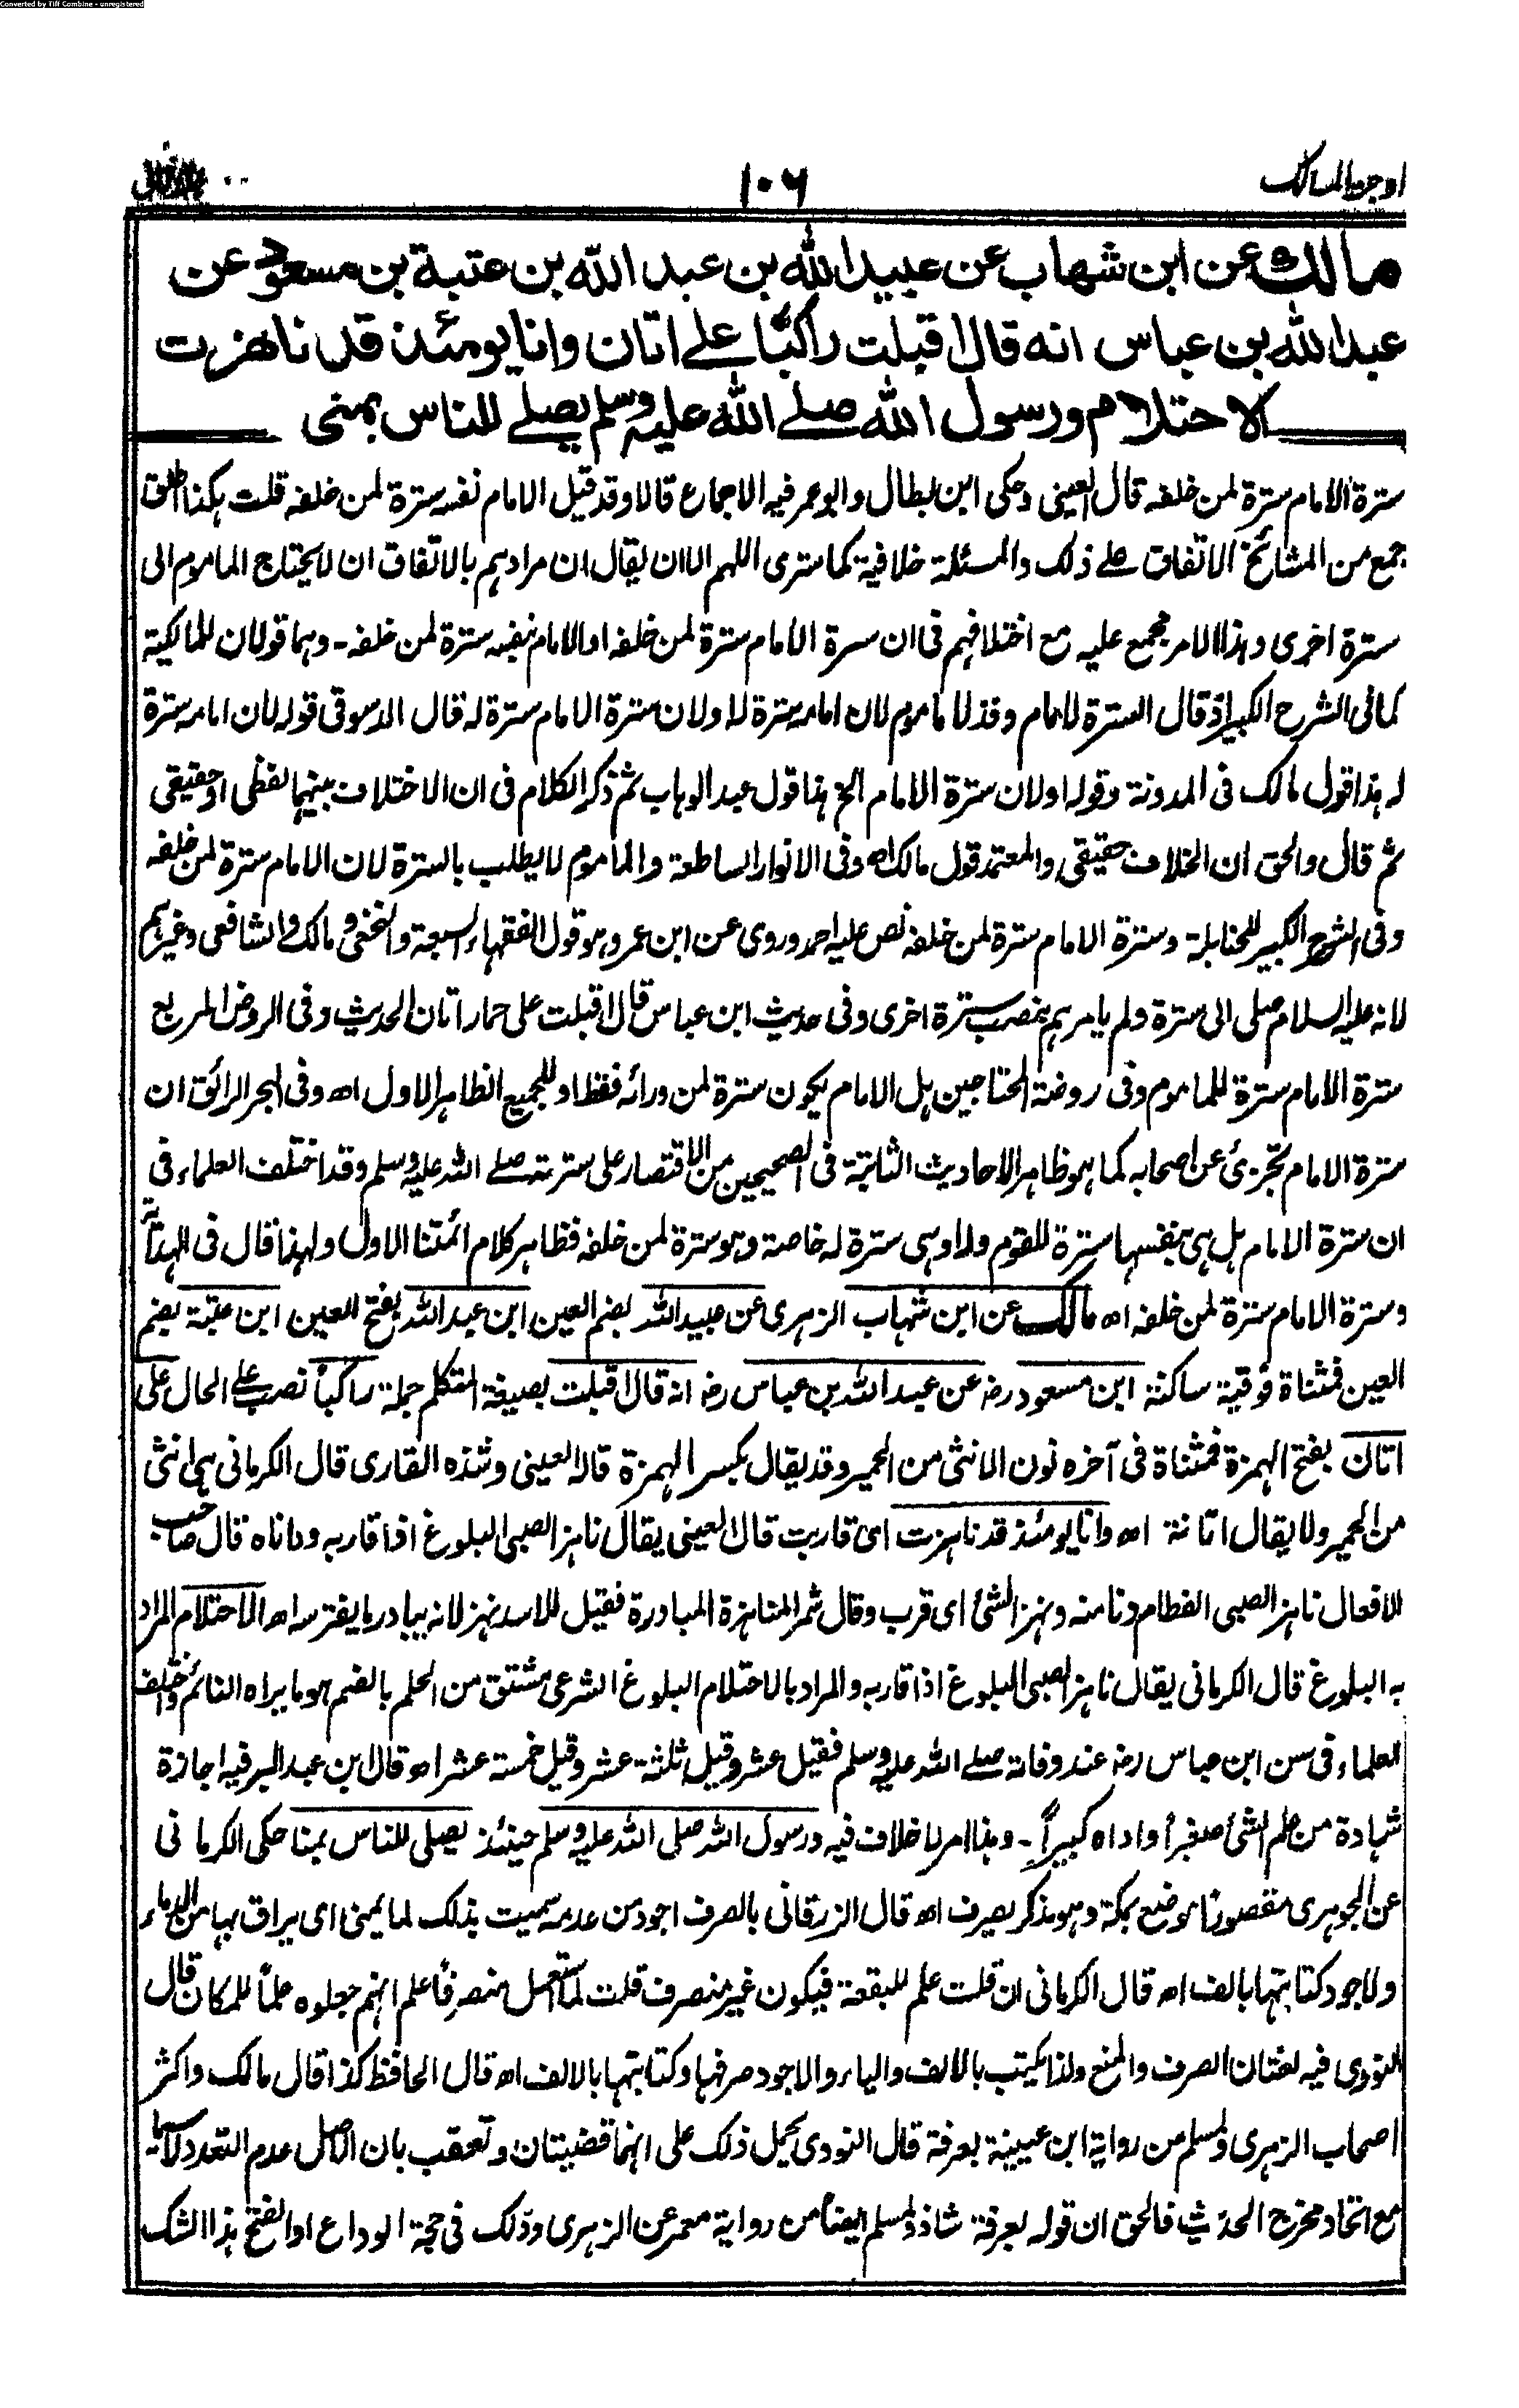 Converted by Tiff Combine - unregistered
اوجز المسالك
١٠٦
مالك عن ابن شهاب عن عبيد الله بن عبد الله بن عتبة بن مسعود عن
عبد الله بن عباس انه قال اقبلت راكبًا على اتان وانا يومئذ قد ناهزت
الاحتلام ورسول الله صلى الله عليه وسلم يصلي للناس بمنى
سترة الامام سترة لمن خلفه قال العيني وحكى ابن بطال وابو عمر فيه الاجماع قالا وقد قيل الامام نفسه سترة لمن خلفه قلت هكذا اطلق
جمع من المشائخ الاتفاق على ذلك والمسئلة خلافية كما سترى اللهم الا ان يقال ان مرادهم بالاتفاق ان لا يحتاج الماموم الى
سترة اخرى وهذا الامر مجمع عليه مع اختلافهم في ان سترة الامام سترة لمن خلفه او الامام نفسه سترة لمن خلفه - وهما قولان للمالكية
كما في الشرح الكبير اذ قال السترة لامام وفذ لا ماموم لان امامه سترة له او لان سترة الامام سترة له قال الدسوقي قوله لان امامه سترة
له هذا قول مالك في المدونة وقوله او لان سترة الامام الخ هذا قول عبد الوهاب ثم ذكر الكلام في ان الاختلاف بينهما لفظي او حقيقي
ثم قال والحق ان الخلاف حقيقي والمعتمد قول مالك اه وفي الانوار الساطعة والماموم لا يطلب بالسترة لان الامام سترة لمن خلفه
وفي الشرح الكبير للحنابلة وسترة الامام سترة لمن خلفه نص عليه احمد وروي عن ابن عمر وهو قول الفقهاء السبعة والنخعي ومالك والشافعي وغيرهم
لانه عليه السلام صلى الى سترة ولم يامرهم بنصب سترة اخرى وفي حديث ابن عباس قال اقبلت على حمار اتان الحديث وفي الروض المربع
سترة الامام سترة للماموم وفي روضة المحتاجين هل الامام يكون سترة لمن ورائه فقط او للجميع الظاهر الاول اه وفي البحر الرائق ان
سترة الامام تجزئ عن اصحابه كما هو ظاهر الاحاديث الثابتة في الصحيحين من الاقتصار على سترته صلى الله عليه وسلم وقد اختلف العلماء في
ان سترة الامام هل هي بنفسها سترة للقوم وله او هي سترة له خاصة وهو سترة لمن خلفه فظاهر كلام ائمتنا الاول ولهذا قال في الهداية
وسترة الامام سترة لمن خلفه اه مالك عن ابن شهاب الزهري عن عبيد الله بضم العين ابن عبد الله بفتح العين ابن عتبة بضم
العين فمثناة فوقية ساكنة ابن مسعود رضـ عن عبد الله بن عباس رضـ انه قال اقبلت بصيغة المتكلم جملة راكبًا نصب على الحال على
اتان بفتح الهمزة فمثناة في آخره نون الانثى من الحمير وقد يقال بكسر الهمزة قاله العيني وشذه القاري قال الكرماني هي انثى
من الحمير ولا يقال اتانة اه وانا يومئذ قد ناهزت اي قاربت قال العيني يقال ناهز الصبي البلوغ اذا قاربه وداناه قال صاحب
الافعال ناهز الصبي الفطام دنا منه ونهز الشئ اي قرب وقال شمر المناهزة المبادرة فقيل للاسد نهز لانه يبادر ما يفترسه اه الاحتلام المراد
به البلوغ قال الكرماني يقال ناهز الصبي البلوغ اذا قاربه والمراد بالاحتلام البلوغ الشرعي مشتق من الحلم بالضم هو ما يراه النائم واختلف
العلماء في سن ابن عباس رضـ عند وفاته صلى الله عليه وسلم فقيل عشر وقيل ثلثة عشر وقيل خمسة عشر اه قال ابن عبد البر فيه اجازة
شهادة من علم الشئ صغيراً واداه كبيراً - وهذا امر لا خلاف فيه ورسول الله صلى الله عليه وسلم حينئذ يصلي للناس بمنا حكى الكرماني
عن الجوهري مقصورًا موضع بمكة وهو مذكر يصرف اه قال الزرقاني بالصرف اجود من عدمه سميت بذلك لما يمنى اي يراق بها من الدماء
والاجود كتابتها بالف اه قال الكرماني ان قلت علم للبقعة فيكون غير منصرف قلت لما استعمل منصرفًا علم انهم جعلوه علمًا للمكان قال
النووي فيه لغتان الصرف والمنع ولذا يكتب بالالف والياء والاجود صرفها وكتابتها بالالف اه قال الحافظ كذا قال مالك واكثر
اصحاب الزهري ولمسلم من رواية ابن عيينة بعرفة قال النووي يحمل ذلك على انهما قضيتان وتعقب بان الاصل عدم التعدد لا سيما
مع اتحاد مخرج الحديث فالحق ان قوله بعرفة شاذ ولمسلم ايضًا من رواية معمر عن الزهري وذلك في حجة الوداع او الفتح هذا الشك